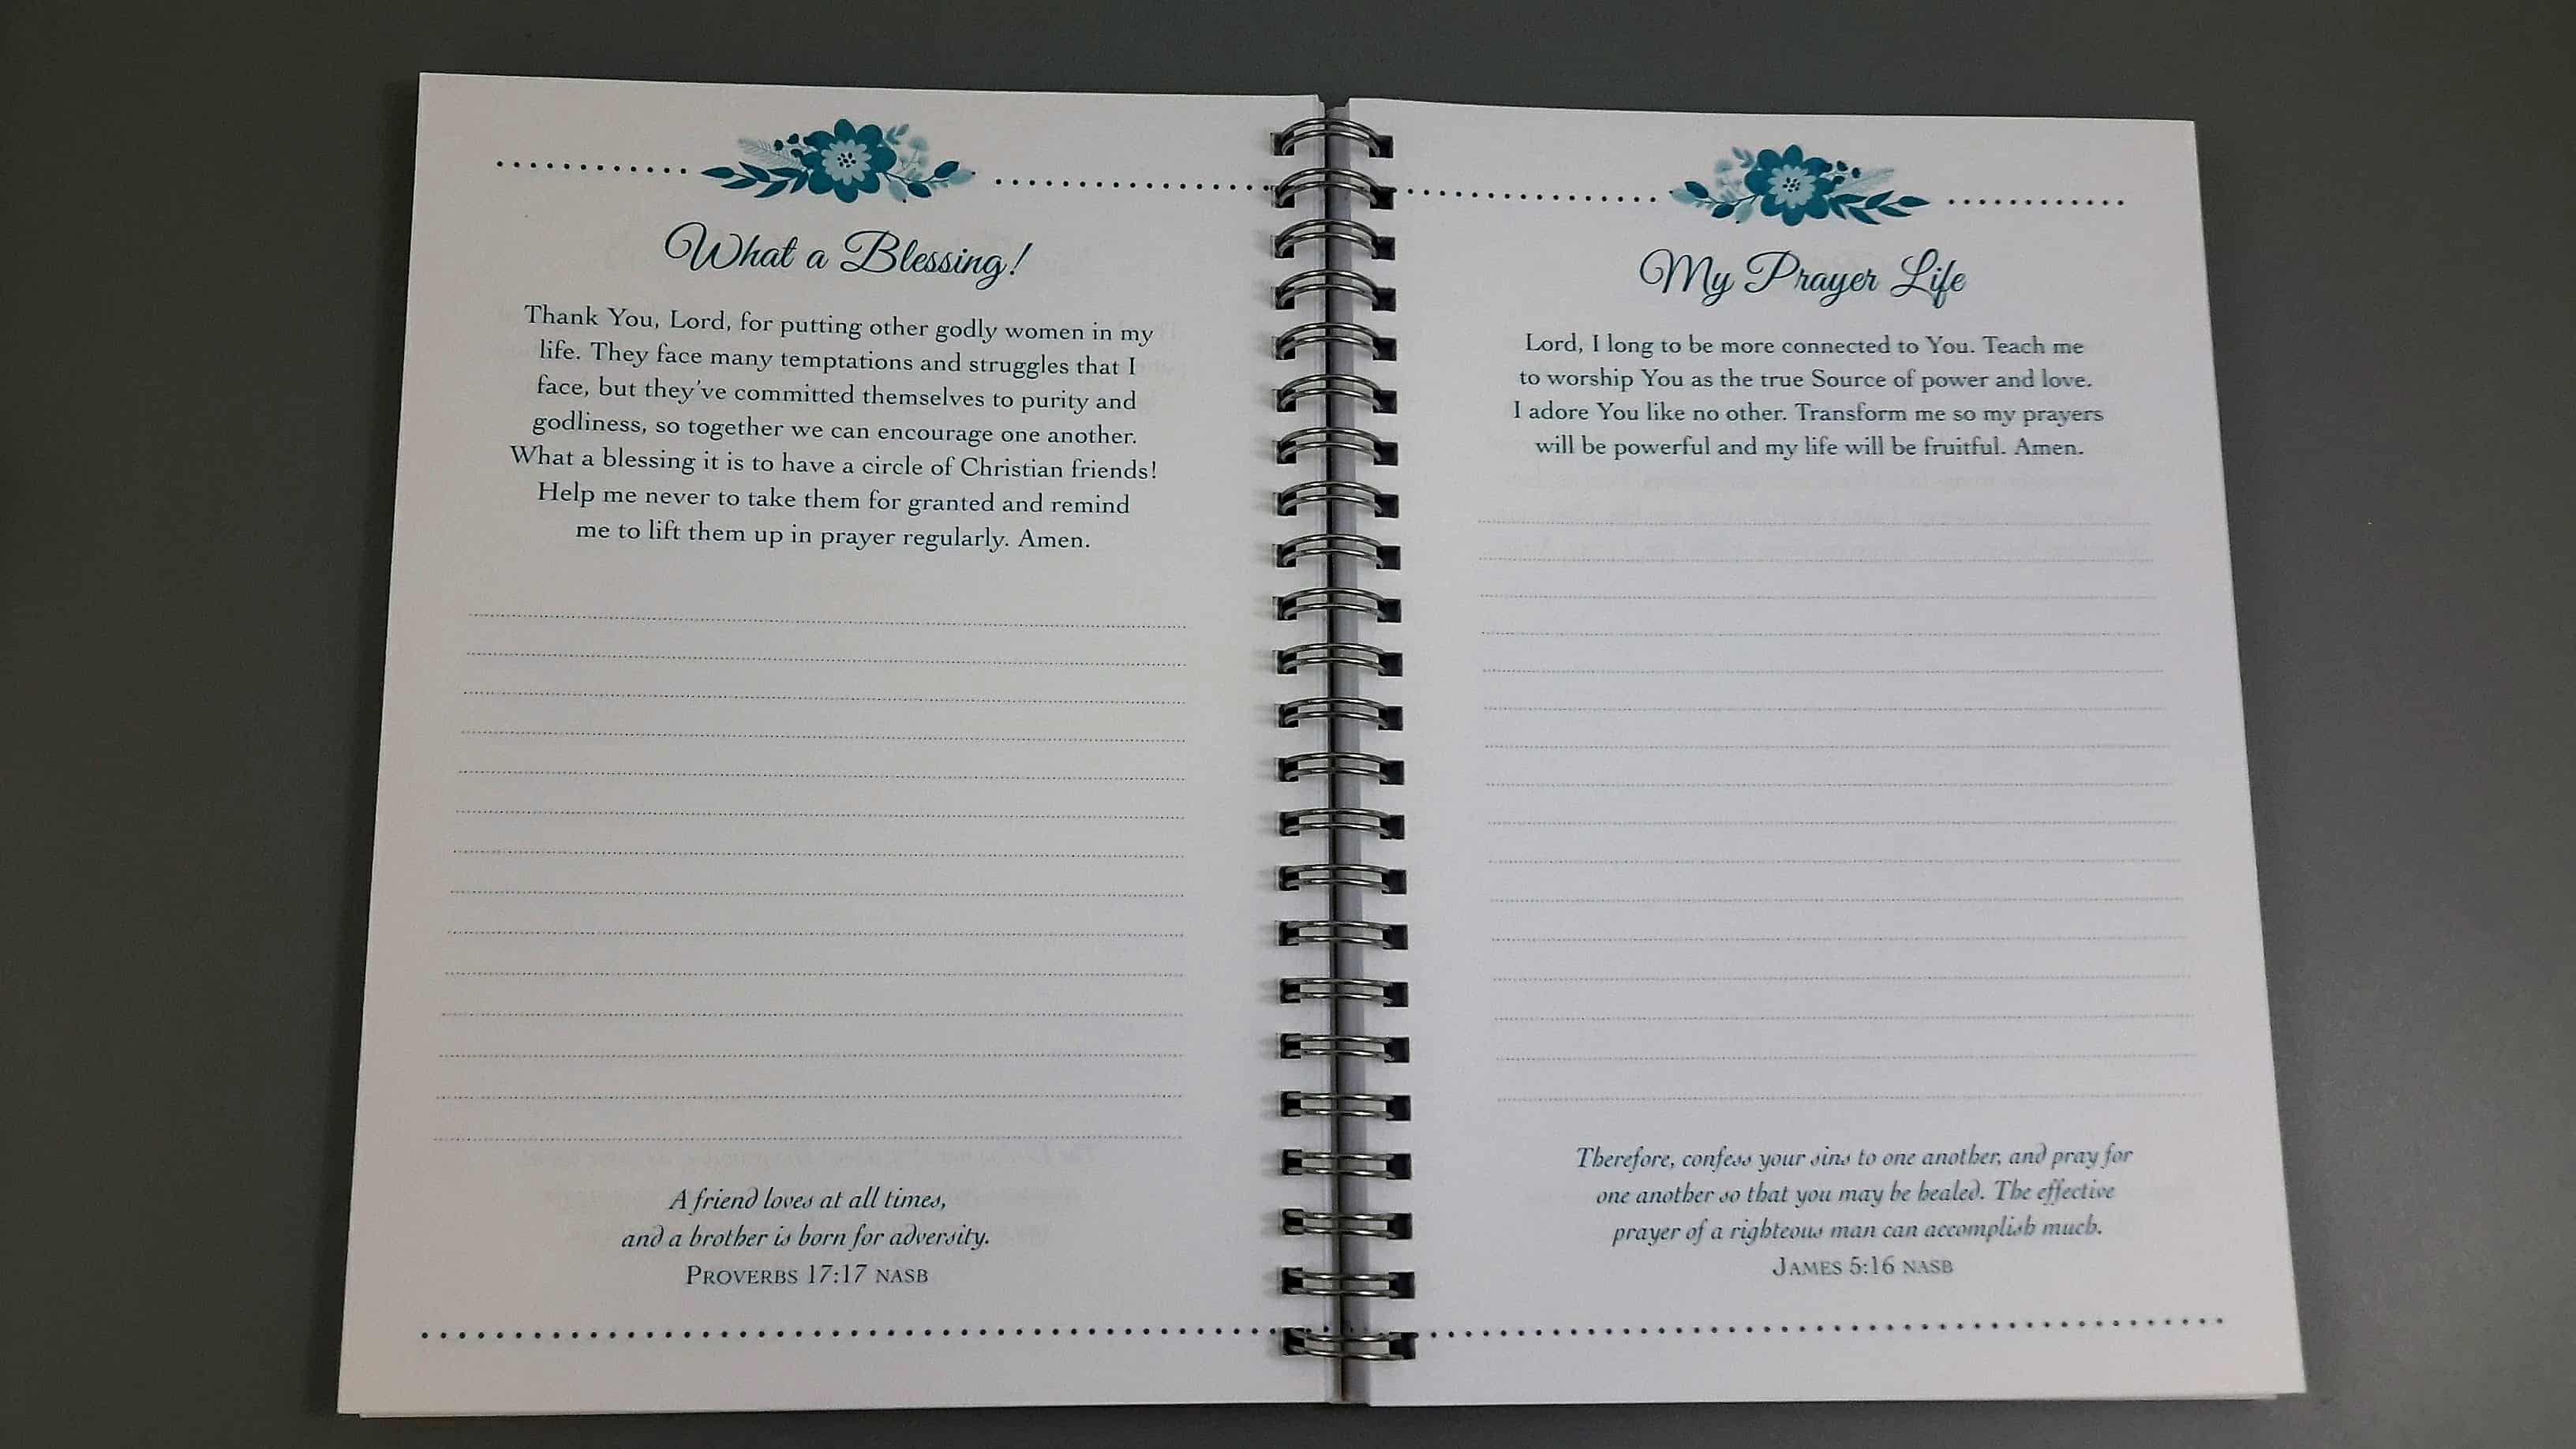 What a Blessing!
Thank You, Lord, for putting other godly women in my
life. They face many temptations and struggles that I
face, but they've committed themselves to purity and
godliness, so together we can encourage one another.
What a blessing it is to have a circle of Christian friends!
Help me never to take them for granted and remind
me to lift them up in prayer regularly. Amen.
A friend loves at all times,
and a brother is born for adversity.
PROVERBS 17:17 NASB
My Prayer Life
Lord, I long to be more connected to You. Teach me
to worship You as the true Source of power and love.
I adore You like no other. Transform me so my prayers
will be powerful and my life will be fruitful. Amen.
Therefore, confess your sins to one another, and pray for
one another so that you may be healed. The effective
prayer of a righteous man can accomplish much.
JAMES 5:16 NASB